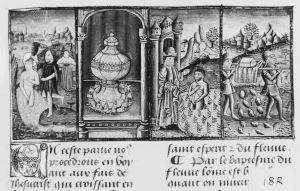 En ceste partie no
procedrons en
ant aux fais de
qui croissant en
saint esperit du fleuve.
¶ Par le baptesme du
fleuve est b
quant on
18R